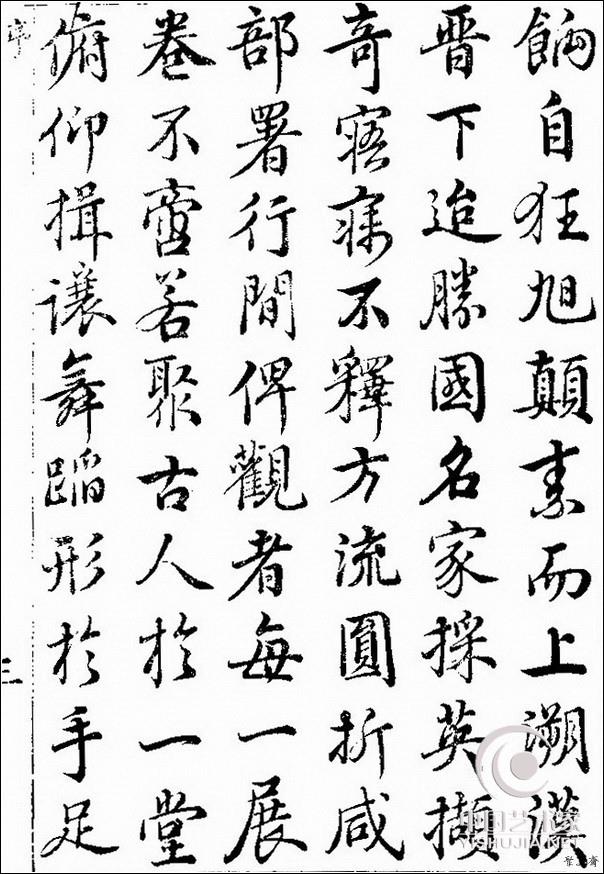 餉自狂旭顛素而上溯漢
晉下迨勝國名家採英擷
奇寤寐不釋方流圓折咸
部署行間俾觀者每一展
卷不啻若聚古人於一堂
俯仰揖讓舞蹈形於手足
序
三
中国艺术家
YISHUJIA.NET